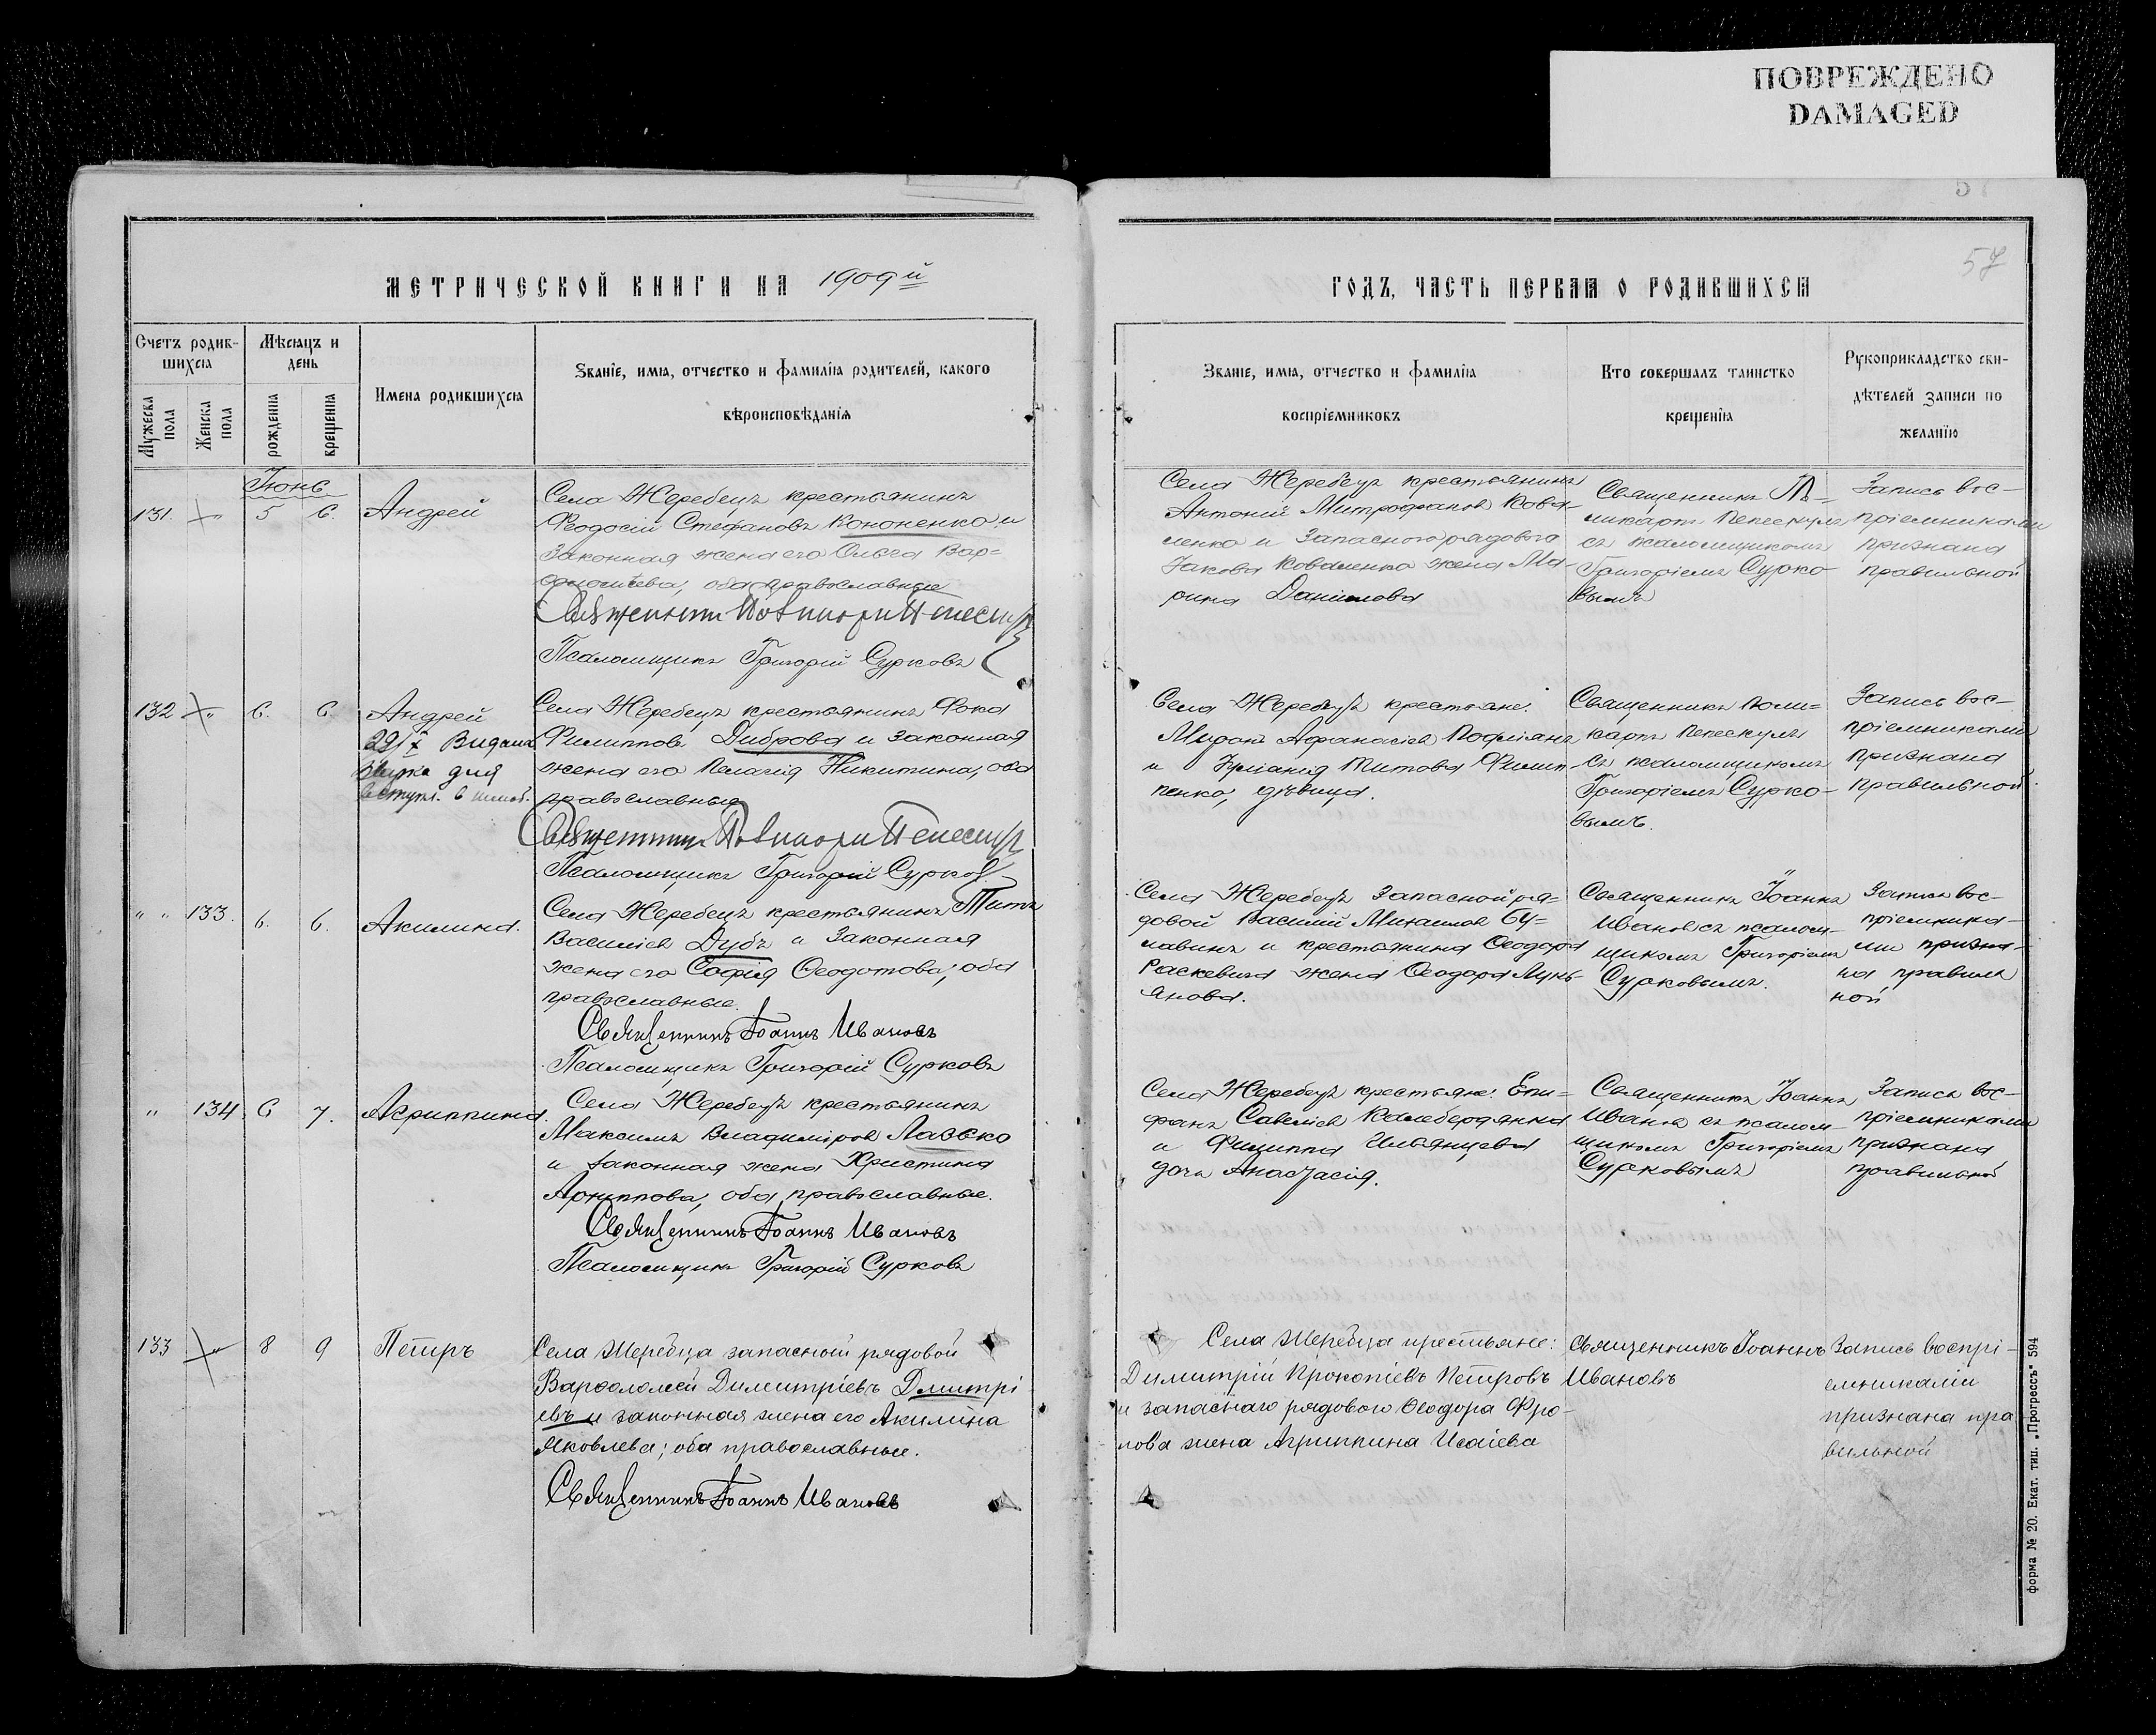 ПОВРЕЖДЕНО
DAMAGED
57
МЕТРИЧЕСКОЙ КНИГИ НА 1909й
ГОДЪ, ЧАСТЬ ПЕРВАЯ О РОДИВШИХСЯ
Счетъ родив-
шихся
Мужеска пола
Женска пола
Мѣсяцъ и
день
рожденія
крещенія
Имена родившихся
Званіе, имя, отчество и фамилія родителей, какого
вѣроисповѣданія
Званіе, имя, отчество и фамилія
воспріемниковъ
Кто совершалъ таинство
крещенія
Рукоприкладство сви-
дѣтелей записи по
желанію
Іюнь
131. 5 6. Андрей
Села Жеребецъ крестьянинъ
Феодосій Стефановъ Кононенко и
Законная жена его Ольга Вар-
оба православные
Священникъ
Псаломщикъ Григорій Сурковъ
Села Жеребецъ крестьянинъ
Антоній Митрофановъ Кова-
ленко и Запасного рядового
Іакова Коваленка жена Ма-
рина Данилова
Священникъ По-
ликарпъ Пепескулъ
съ псаломщикомъ
Григоріемъ Сурко-
вымъ
Запись вос-
пріемниками
признана
правильной
132 6. 6 Андрей
29/X Видана
для
вступл. в
Села Жеребецъ крестьянинъ Фока
Филипповъ Диброва и Законная
жена его Пелагія Никитина, оба
православные
Священникъ
Псаломщикъ Григорій Сурковъ
Села Жеребецъ крестьяне:
Миронъ Афанасіевъ
и Іуліанія Титова Филип-
пенко, дѣвица.
Священникъ Поли-
карпъ Пепескулъ
съ псаломщикомъ
Григоріемъ Сурко-
вымъ.
Запись вос-
пріемниками
признана
правильной
" " 133. 6. 6. Акилина.
Села Жеребецъ крестьянинъ Титъ
Василіевъ Дубъ и Законная
жена его Софія Ѳеодотова; оба
православные.
Священникъ Іоаннъ Ивановъ
Псаломщикъ Григорій Сурковъ
Села Жеребецъ Запасной ря-
довой Василій Михаиловъ Бу-
лавинъ и крестьянина Ѳеодора
Раскевича жена Ѳеодора Лукь-
янова.
Священникъ Іоаннъ
Ивановъ съ псалом-
щикомъ Григоріемъ
Сурковымъ.
Запись вос-
пріемника-
ми призна-
на правиль
ной
" 134. 6 7. Агриппина.
Села Жеребецъ крестьянинъ
Максимъ Владиміровъ Лазько
и законная жена Христина
Архиппова, оба православные.
Священникъ Іоаннъ Ивановъ
Псаломщикъ Григорій Сурковъ
Села Жеребецъ крестьяне: Епи-
фанъ Савеліевъ
и Филиппа Ильянцева
дочь Анастасія.
Священникъ Іоаннъ
Ивановъ съ псалом-
щикомъ Григоріемъ
Сурковымъ
Запись вос-
пріемниками
признана
правильной
133 8 9 Петръ
Села Жеребца запасный рядовой
Варѳоломей Димитріевъ Дмитрі
евъ и законная жена его Акилина
Яковлева; оба православные.
Священникъ Іоаннъ Ивановъ
Села Жеребца крестьяне:
Димитрій Прокопіевъ Петровъ
и запаснаго рядового Ѳеодора Фро-
лова жена Агриппина Исаіева
Священникъ Іоаннъ
Ивановъ
Запись воспрі-
емниками
признана пра
вильной
форма № 20. Екат. тип. „Прогрессъ" 594